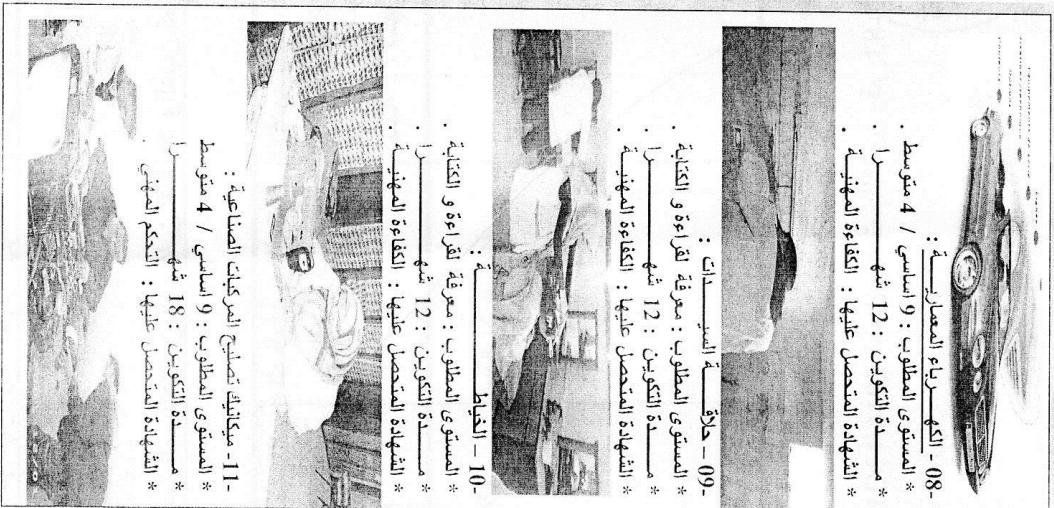 -08 - الكهـــرباء المعماريـــة :
* المستوى المطلوب : 9 اساسي / 4 متوسط .
* مــــدة التكوين : 12 شهــــــــرا .
* الشهادة المتحصل عليها : الكفاءة المهنيــة .
-09 – حلاقـــة السيــــدات :
* المستوى المطلوب : معرفة لقراءة و الكتابة .
* مــــدة التكوين : 12 شهــــــــرا .
* الشهادة المتحصل عليها : الكفاءة المهنيــة .
-10 – الخياطــــــــــة :
* المستوى المطلوب : معرفة لقراءة و الكتابة .
* مــــدة التكوين : 12 شهــــــــرا .
* الشهادة المتحصل عليها : الكفاءة المهنيــة .
-11- ميكانيك تصليح المركبات الصناعية :
* المستوى المطلوب : 9 اساسي / 4 متوسط
* مــــدة التكوين : 18 شهــــــــرا
* الشهادة المتحصل عليها : التحكم المهني .